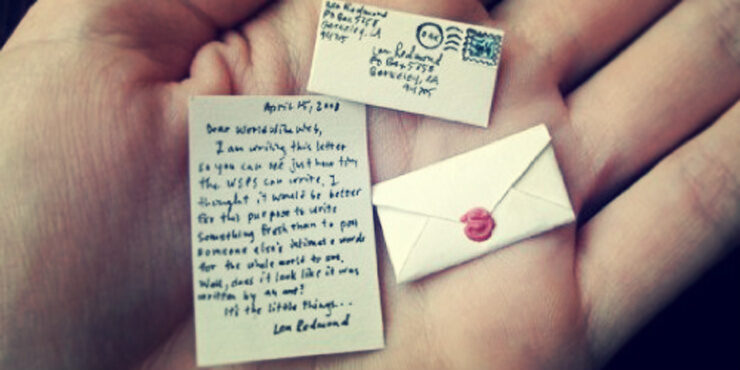 Len Redmond
PO Box 5258
Berkeley, CA
94705
Len Redmond
PO Box 5258
Berkeley, CA
94705
April 15, 2008
Dear World Wide Web,
I am writing this letter
so you can see just how tiny
the WSPS can write. I
thought it would be better
for this purpose to write
something fresh than to post
someone else's intimate words
for the whole world to see.
Well, does it look like it was
written by an ant?
It's the little things...
Len Redmond